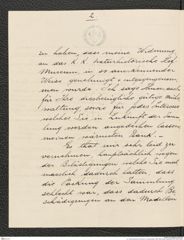 2
zu haben, dass meine Widmung
an das K. K. Naturhistorische Hof
Museum, in so anerkennender
Weise genehmigt & entgegengenom-
men wurde. Ich sage Ihnen auch
für Ihre diesbezügliche gütige mühe
waltung sowie für jedes Interesse
welches Sie in Zukunft der Samm
lung werden angedeihen lassen
meinen wärmsten Dank.
Es that mir sehr leid zu
vernehmen, hauptsächlich wegen
der Belästigungen welche Sie und
dadurch hatten, dass
die Packung der Sammlung
schlecht war, dass dadurch Be
schädigungen an den Modellen